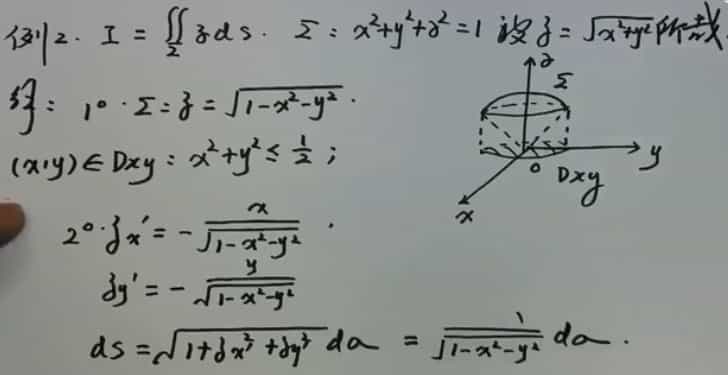 例2. I = ∬_Σ z ds. Σ: x²+y²+z²=1 被 z=√(x²+y²) 所截
解: 1°. Σ: z = √(1-x²-y²).
(x,y) ∈ Dxy: x²+y² ≤ 1/2;
2°. zx' = - x/√(1-x²-y²).
zy' = - y/√(1-x²-y²)
ds = √(1+zx'²+zy'²) da = 1/√(1-x²-y²) da.
z
Σ
y
0
Dxy
x